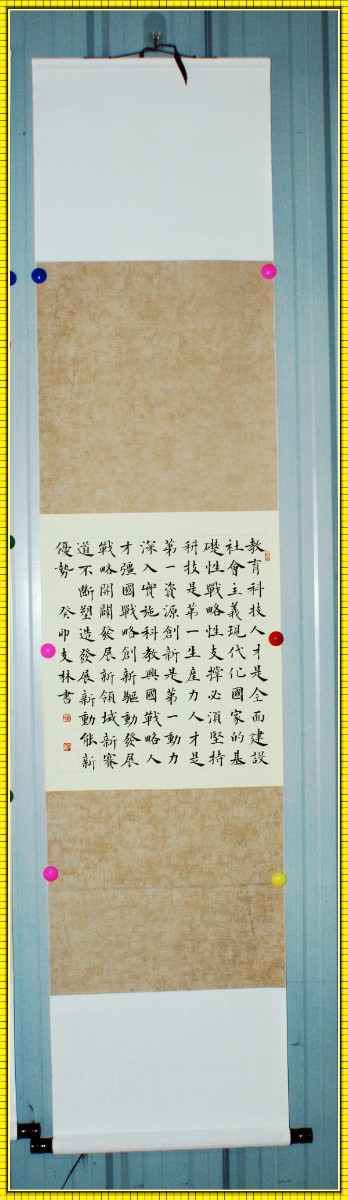 教育科技人才是全面建設
社會主義現代化國家的基
礎性戰略性支撐必須堅持
科技是第一生産力人才是
第一資源創新是第一動力
深入實施科教興國戰略人
才彊國戰略創新驅動發展
戰略開闢發展新領域新賽
道不斷塑造發展新動能新
優勢 癸卯支林書